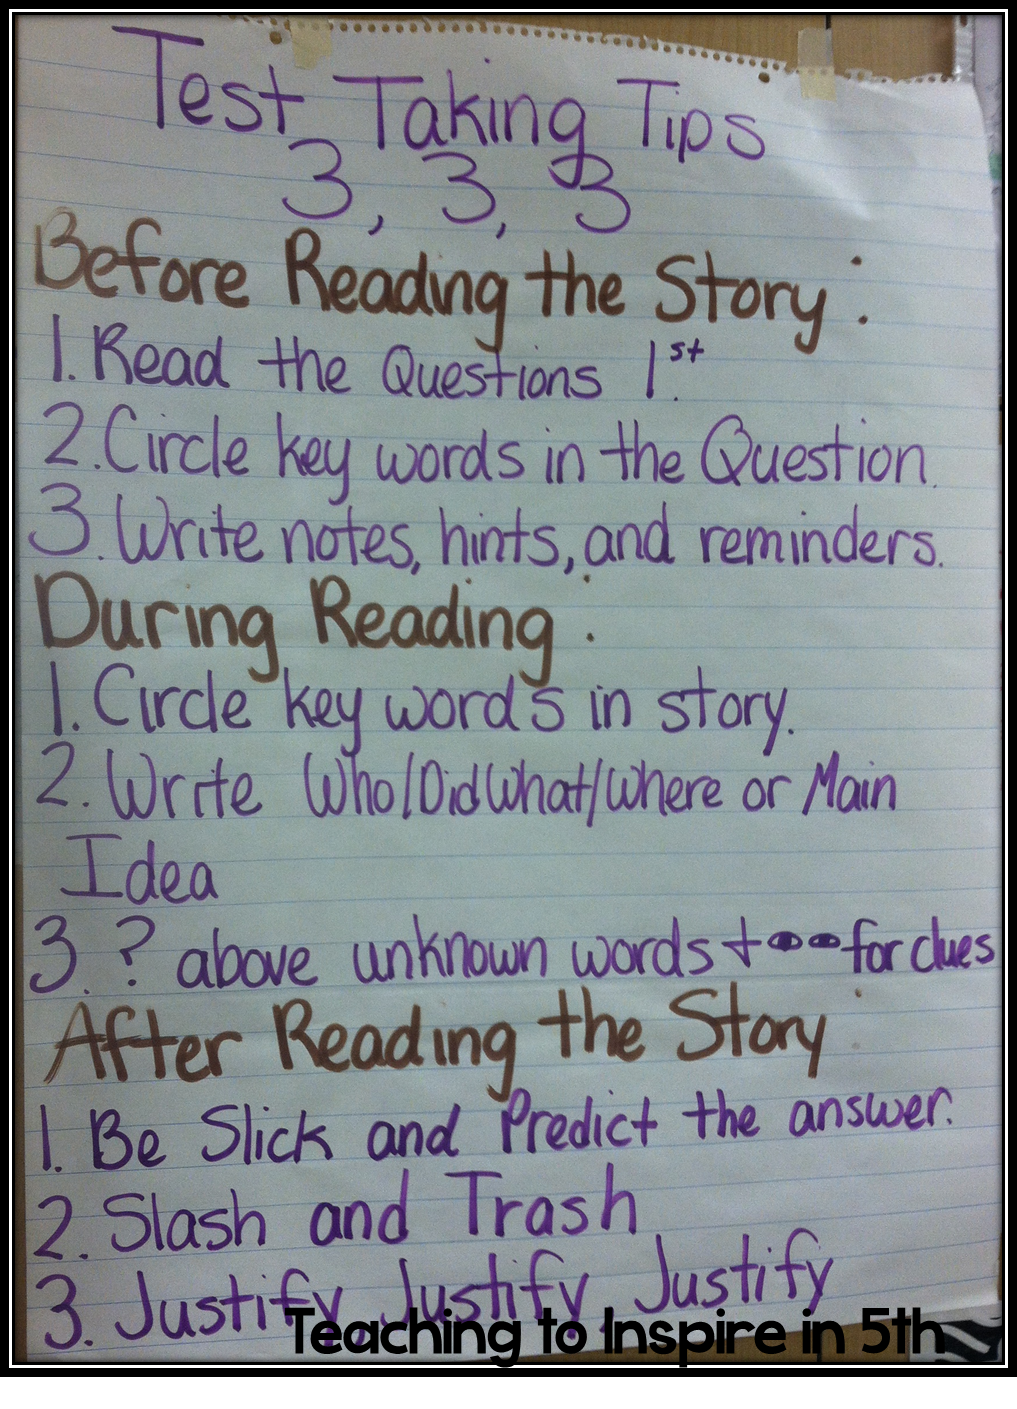 Test Taking Tips
3, 3, 3
Before Reading the Story:
1. Read the Questions 1st.
2. Circle key words in the Question.
3. Write notes, hints, and reminders.
During Reading:
1. Circle key words in story.
2. Write Who/Did What/Where or Main
Idea
3. ? above unknown words + for clues
After Reading the Story:
1. Be Slick and Predict the answer.
2. Slash and Trash
3. Justify, Justify, Justify
Teaching to Inspire in 5th